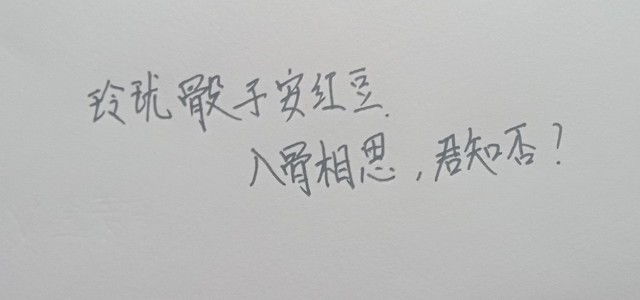 玲珑骰子安红豆.
入骨相思,君知否?